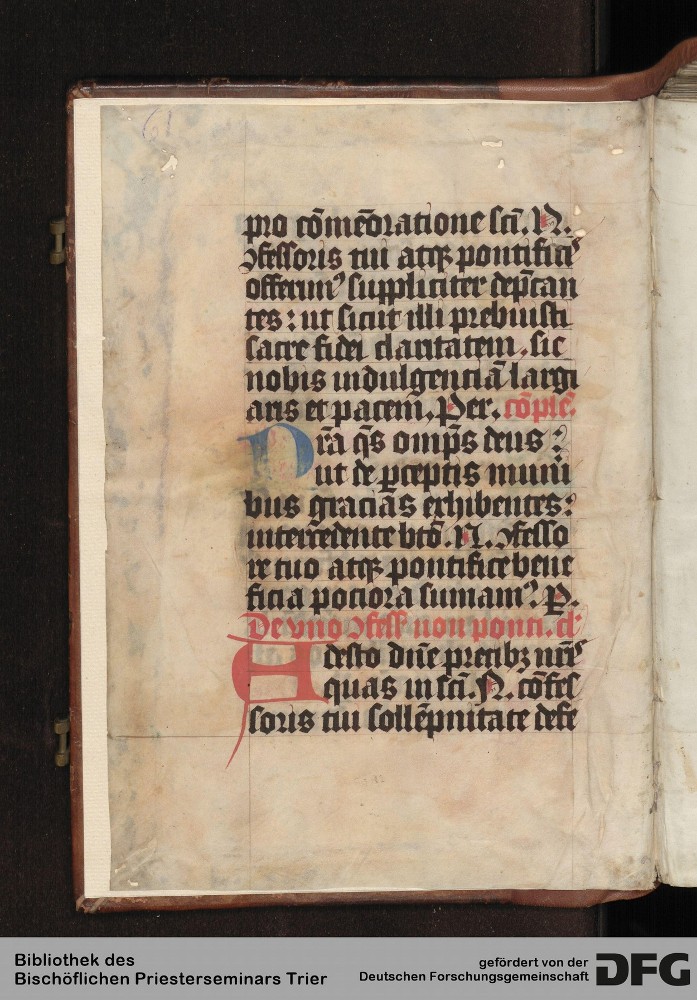 61
pro cōmēoratione scī. N.
ꝯfessoris tui atqꝫ pontifici᷒
offerim᷒ suppliciter dep̄can
tes : ut sicut illi prebuisti
sacre fidei claritatem, sic
nobis indulgenciā largi
aris et pacem̄, Per. cōple.
P̄ra q̄s omp̄s deus :
ut de ꝑceptis muni
bus graciās exhibentes :
intercedente btō. N. ꝯfesso
re tuo atqꝫ pontifice bene
ficia pociora sumam᷒. P.
De vno ꝯfess non ponti. cł
Adesto dn̄e precibꝫ nr̄is
quas in scī. N. cōfes
soris tui sollēpnitate defe
Bibliothek des
Bischöflichen Priesterseminars Trier
gefördert von der
Deutschen Forschungsgemeinschaft
DFG